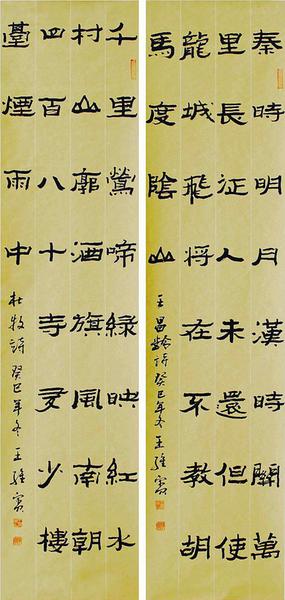 秦時明月漢時關萬
里長征人未還但使
龍城飛将在不教胡
馬度陰山
王昌齡詩癸巳年冬王
千里鶯啼綠映紅水
村山廓酒旗風南朝
四百八十寺多少樓
臺煙雨中
杜牧詩癸巳年冬王